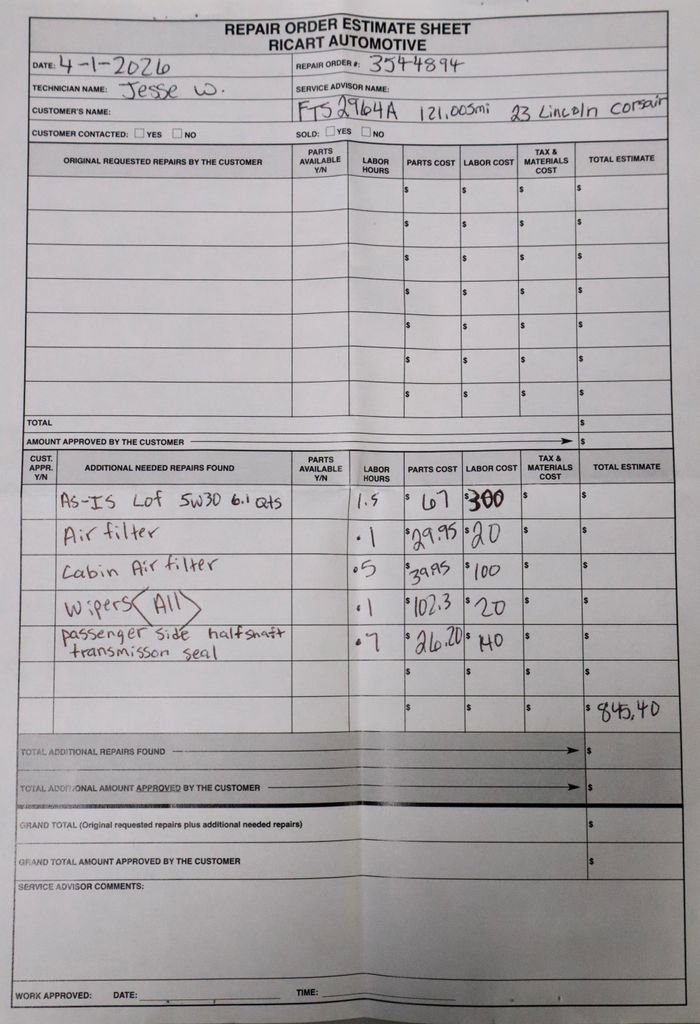 REPAIR ORDER ESTIMATE SHEET
RICART AUTOMOTIVE
DATE: 4-1-2026 REPAIR ORDER #: 3544894
TECHNICIAN NAME: Jesse W. SERVICE ADVISOR NAME:
CUSTOMER'S NAME: FTS2964A 121,005mi 23 Lincoln Corsair
CUSTOMER CONTACTED: YES NO SOLD: YES NO
ORIGINAL REQUESTED REPAIRS BY THE CUSTOMER PARTS AVAILABLE Y/N LABOR HOURS PARTS COST LABOR COST TAX & MATERIALS COST TOTAL ESTIMATE
$ $ $ $
$ $ $ $
$ $ $ $
$ $ $ $
$ $ $ $
$ $ $ $
$ $ $ $
TOTAL $
AMOUNT APPROVED BY THE CUSTOMER $
CUST. APPR. Y/N ADDITIONAL NEEDED REPAIRS FOUND PARTS AVAILABLE Y/N LABOR HOURS PARTS COST LABOR COST TAX & MATERIALS COST TOTAL ESTIMATE
As-Is Lof 5w30 6.1 Qts 1.5 $ 67 $ 300 $ $
Air filter .1 $ 29.95 $ 20 $ $
Cabin Air filter .5 $ 39.95 $ 100 $ $
Wipers <All> .1 $ 102.3 $ 20 $ $
passenger side halfshaft
transmisson seal .7 $ 26.20 $ 140 $ $
$ $ $ $
$ $ $ $ 845.40
TOTAL ADDITIONAL REPAIRS FOUND $
TOTAL ADDITIONAL AMOUNT APPROVED BY THE CUSTOMER $
GRAND TOTAL (Original requested repairs plus additional needed repairs) $
GRAND TOTAL AMOUNT APPROVED BY THE CUSTOMER $
SERVICE ADVISOR COMMENTS:
WORK APPROVED: DATE: TIME: